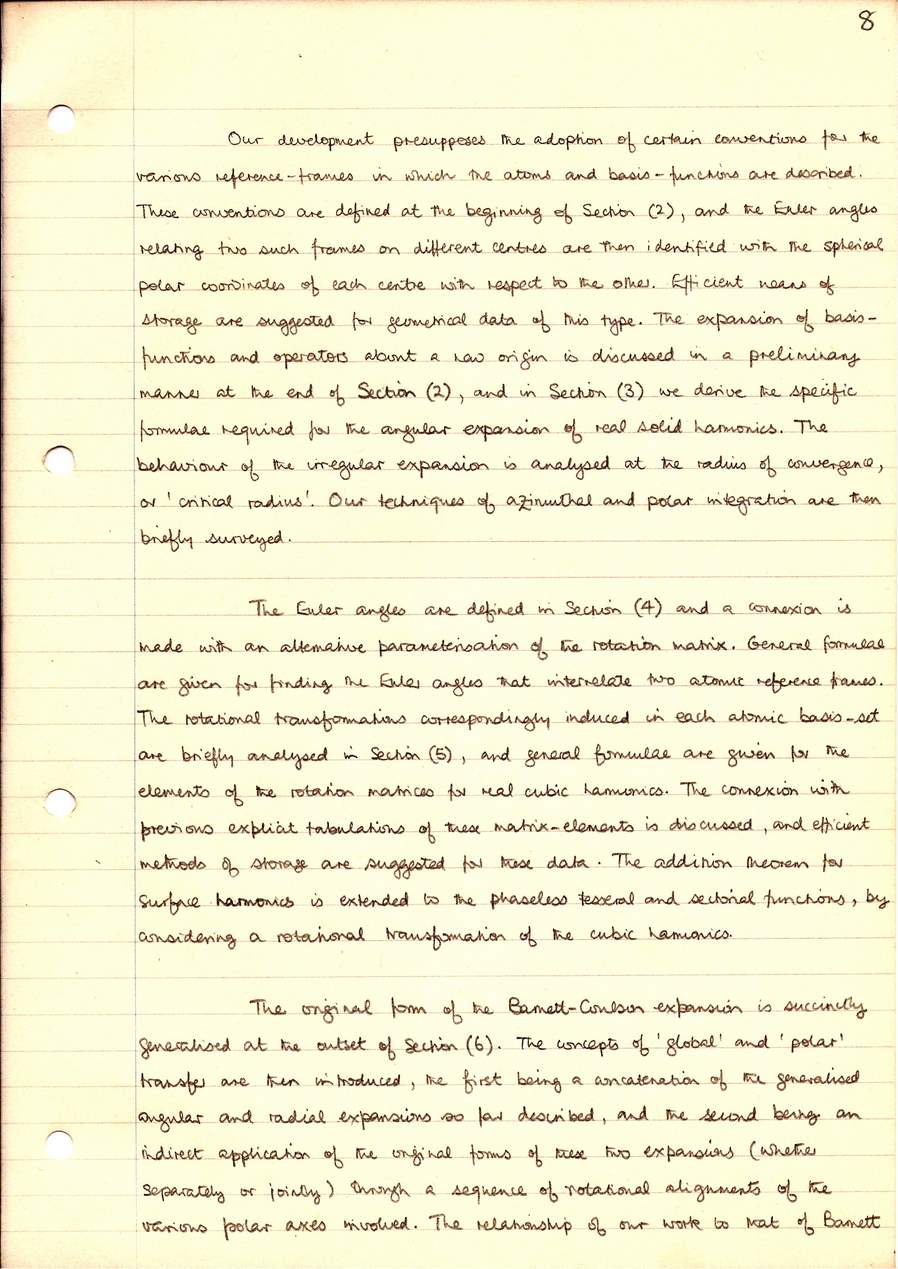 8
Our development presupposes the adoption of certain conventions for the
various reference-frames in which the atoms and basis-functions are described.
These conventions are defined at the beginning of Section (2), and the Euler angles
relating two such frames on different centres are then identified with the spherical
polar coordinates of each centre with respect to the other. Efficient means of
storage are suggested for geometrical data of this type. The expansion of basis-
functions and operators about a new origin is discussed in a preliminary
manner at the end of Section (2), and in Section (3) we derive the specific
formulae required for the angular expansion of real solid harmonics. The
behaviour of the irregular expansion is analysed at the radius of convergence,
or 'critical radius'. Our techniques of azimuthal and polar integration are then
briefly surveyed.
The Euler angles are defined in Section (4) and a connexion is
made with an alternative parameterisation of the rotation matrix. General formulae
are given for finding the Euler angles that interrelate two atomic reference frames.
The rotational transformations correspondingly induced in each atomic basis-set
are briefly analysed in Section (5), and general formulae are given for the
elements of the rotation matrices for real cubic harmonics. The connexion with
previous explicit tabulations of these matrix-elements is discussed, and efficient
methods of storage are suggested for these data. The addition theorem for
surface harmonics is extended to the phaseless tesseral and sectorial functions, by
considering a rotational transformation of the cubic harmonics.
The original form of the Barnett-Coulson expansion is succinctly
generalised at the outset of Section (6). The concepts of 'global' and 'polar'
transfer are then introduced, the first being a concatenation of the generalised
angular and radial expansions so far described, and the second being an
indirect application of the original forms of these two expansions (whether
separately or jointly) through a sequence of rotational alignments of the
various polar axes involved. The relationship of our work to that of Barnett